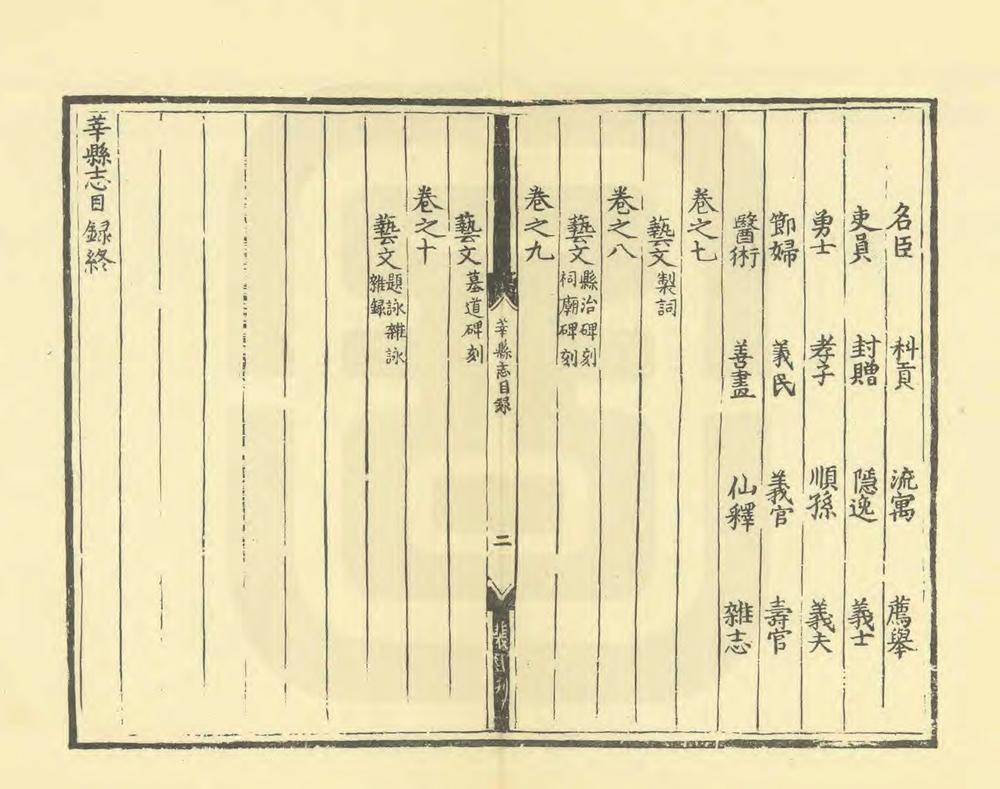 名臣 科貢 流寓 薦舉
吏員 封贈 隱逸 義士
勇士 孝子 順孫 義夫
節婦 義民 義官 壽官
醫術 善畫 仙釋 雜志
卷之七
藝文 製詞
卷之八
藝文 縣治碑刻
祠廟碑刻
卷之九
莘縣志目録
二
藝文 墓道碑刻
卷之十
藝文 題詠雜詠
雜録
莘縣志目録終